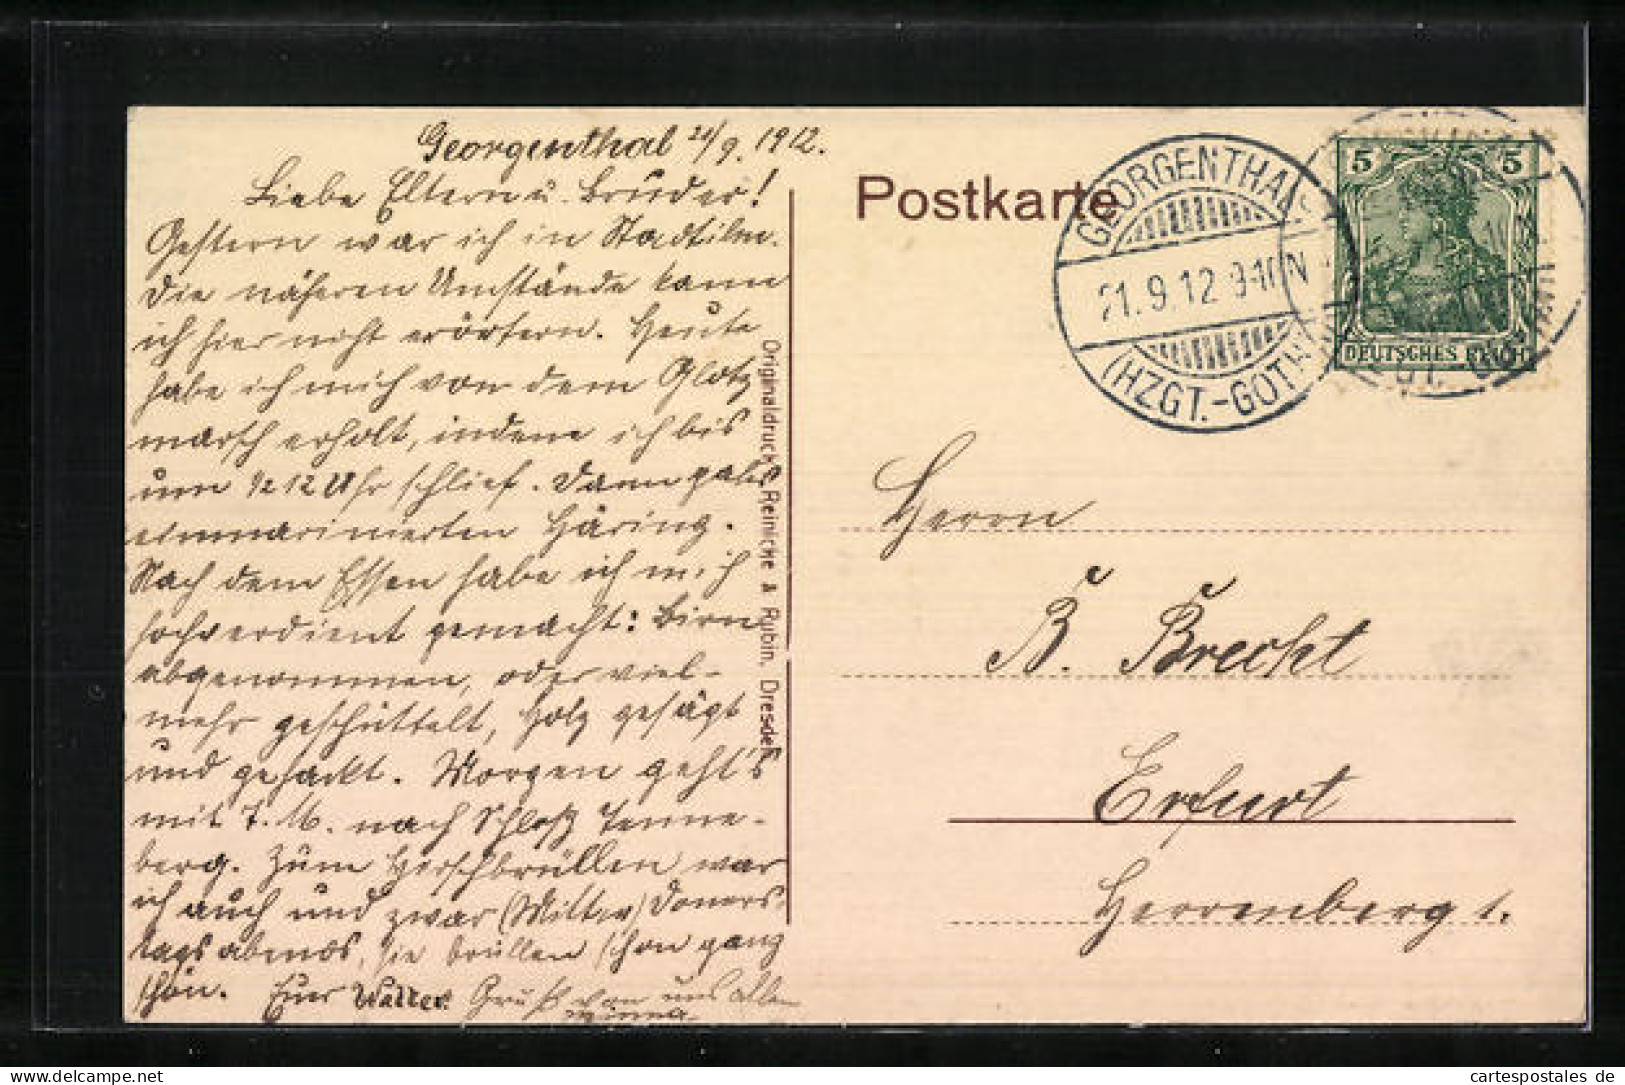 Georgenthal 21/9. 1912.
Liebe Eltern u. Bruder!
Gestern war ich in Stadtilm.
Die näheren Umstände kann
ich hier nicht erörtern. Heute
habe ich mich von dem Glotz
marsch erholt, indem ich bis
um 1/2 12 Uhr schlief. Dann gabs
ein marinierten Häring.
Nach dem Essen habe ich mich
hochverdient gemacht: Birn
abgenommen, oder viel-
mehr geschüttelt, Holz gesägt
und gehackt. Morgen geht's
mit T. M. nach Schloß Tenne-
berg. Zum Hirschbrüllen war
ich auch und zwar (Mitter) Donners-
tags abends, sie brüllen schon ganz
schön. Euer Walter. Gruß von uns allen
Minna
Originaldruck Reinicke & Rubin, Dresden
Postkarte
GEORGENTHAL
21.9.12 9-10N
(HZGT.-GOTHA)
5 5
DEUTSCHES REICH
Herrn
B. Brecht
Erfurt
Herrenberg 1.
www.delcampe.net
cartespostales de